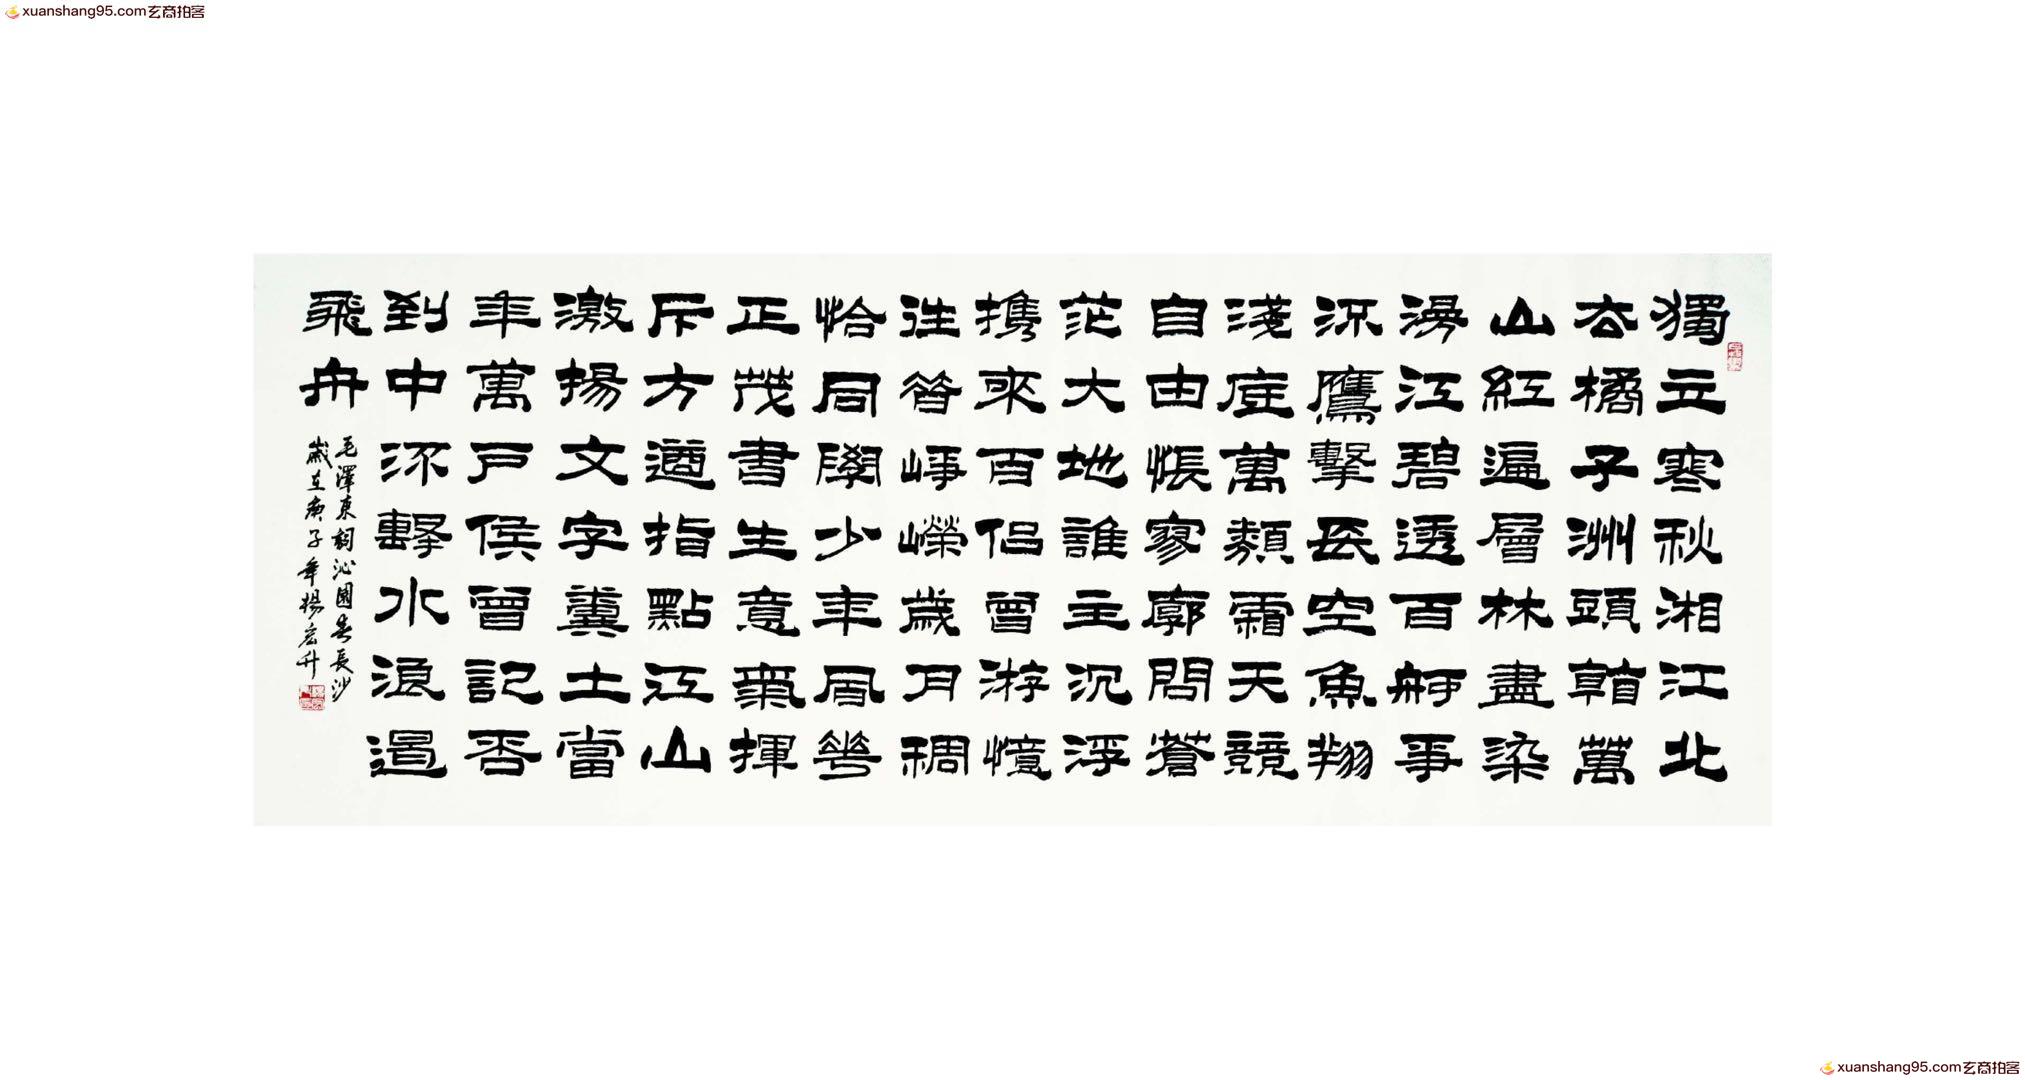 xuanshang95.com玄商拍客
獨立寒秋湘江北
去橘子洲頭看萬
山紅遍層林盡染
漫江碧透百舸爭
流鷹擊長空魚翔
淺底萬類霜天競
自由悵寥廓問蒼
茫大地誰主沉浮
攜來百侶曾游憶
往昔崢嶸歲月稠
恰同學少年風華
正茂書生意氣揮
斥方遒指點江山
激揚文字糞土當
年萬戶侯曾記否
到中流擊水浪遏
飛舟
毛澤東詞沁園春長沙
歲在庚子年楊宏升
xuanshang95.com玄商拍客